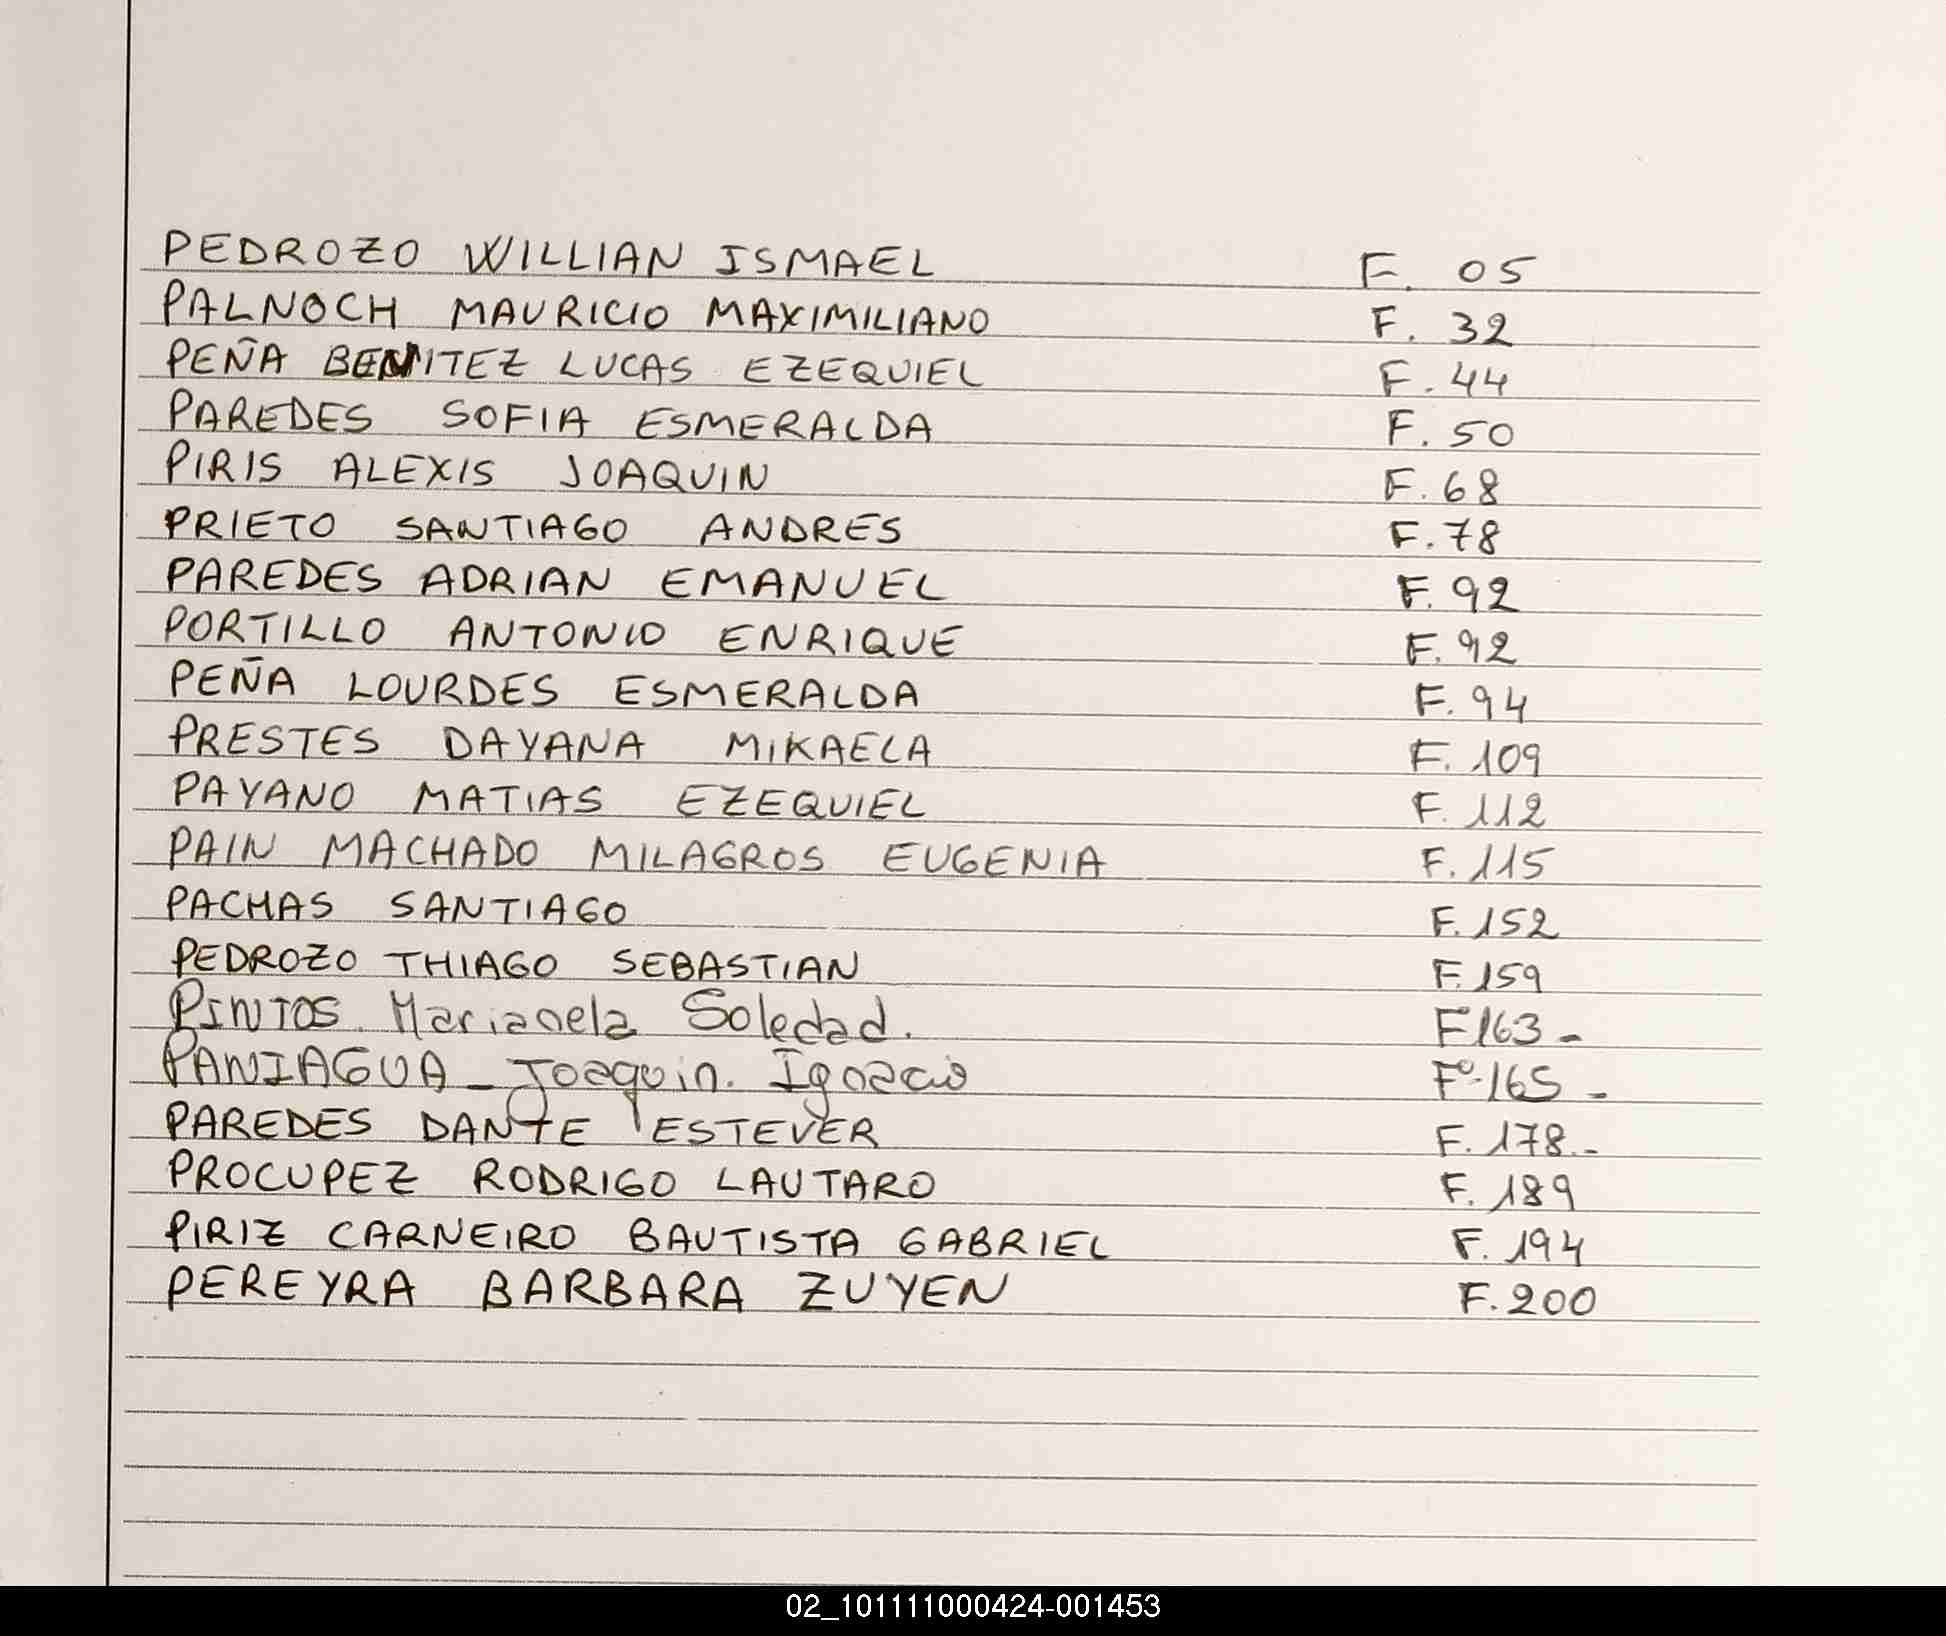 PEDROZO WILLIAN ISMAEL F. 05
PALNOCH MAURICIO MAXIMILIANO F. 32
PEÑA BENITEZ LUCAS EZEQUIEL F. 44
PAREDES SOFIA ESMERALDA F. 50
PIRIS ALEXIS JOAQUIN F. 68
PRIETO SANTIAGO ANDRES F. 78
PAREDES ADRIAN EMANUEL F. 92
PORTILLO ANTONIO ENRIQUE F. 92
PEÑA LOURDES ESMERALDA F. 94
PRESTES DAYANA MIKAELA F. 109
PAYANO MATIAS EZEQUIEL F. 112
PAIN MACHADO MILAGROS EUGENIA F. 115
PACHAS SANTIAGO F. 152
PEDROZO THIAGO SEBASTIAN F. 159
PINTOS. Marianela Soledad. F°163-
PANIAGUA - Joaquin. Ignacio F°-165-
PAREDES DANTE ESTEVER F. 178.-
PROCUPEZ RODRIGO LAUTARO F. 189
PIRIZ CARNEIRO BAUTISTA GABRIEL F. 194
PEREYRA BARBARA ZUYEN F. 200
02_101111000424-001453